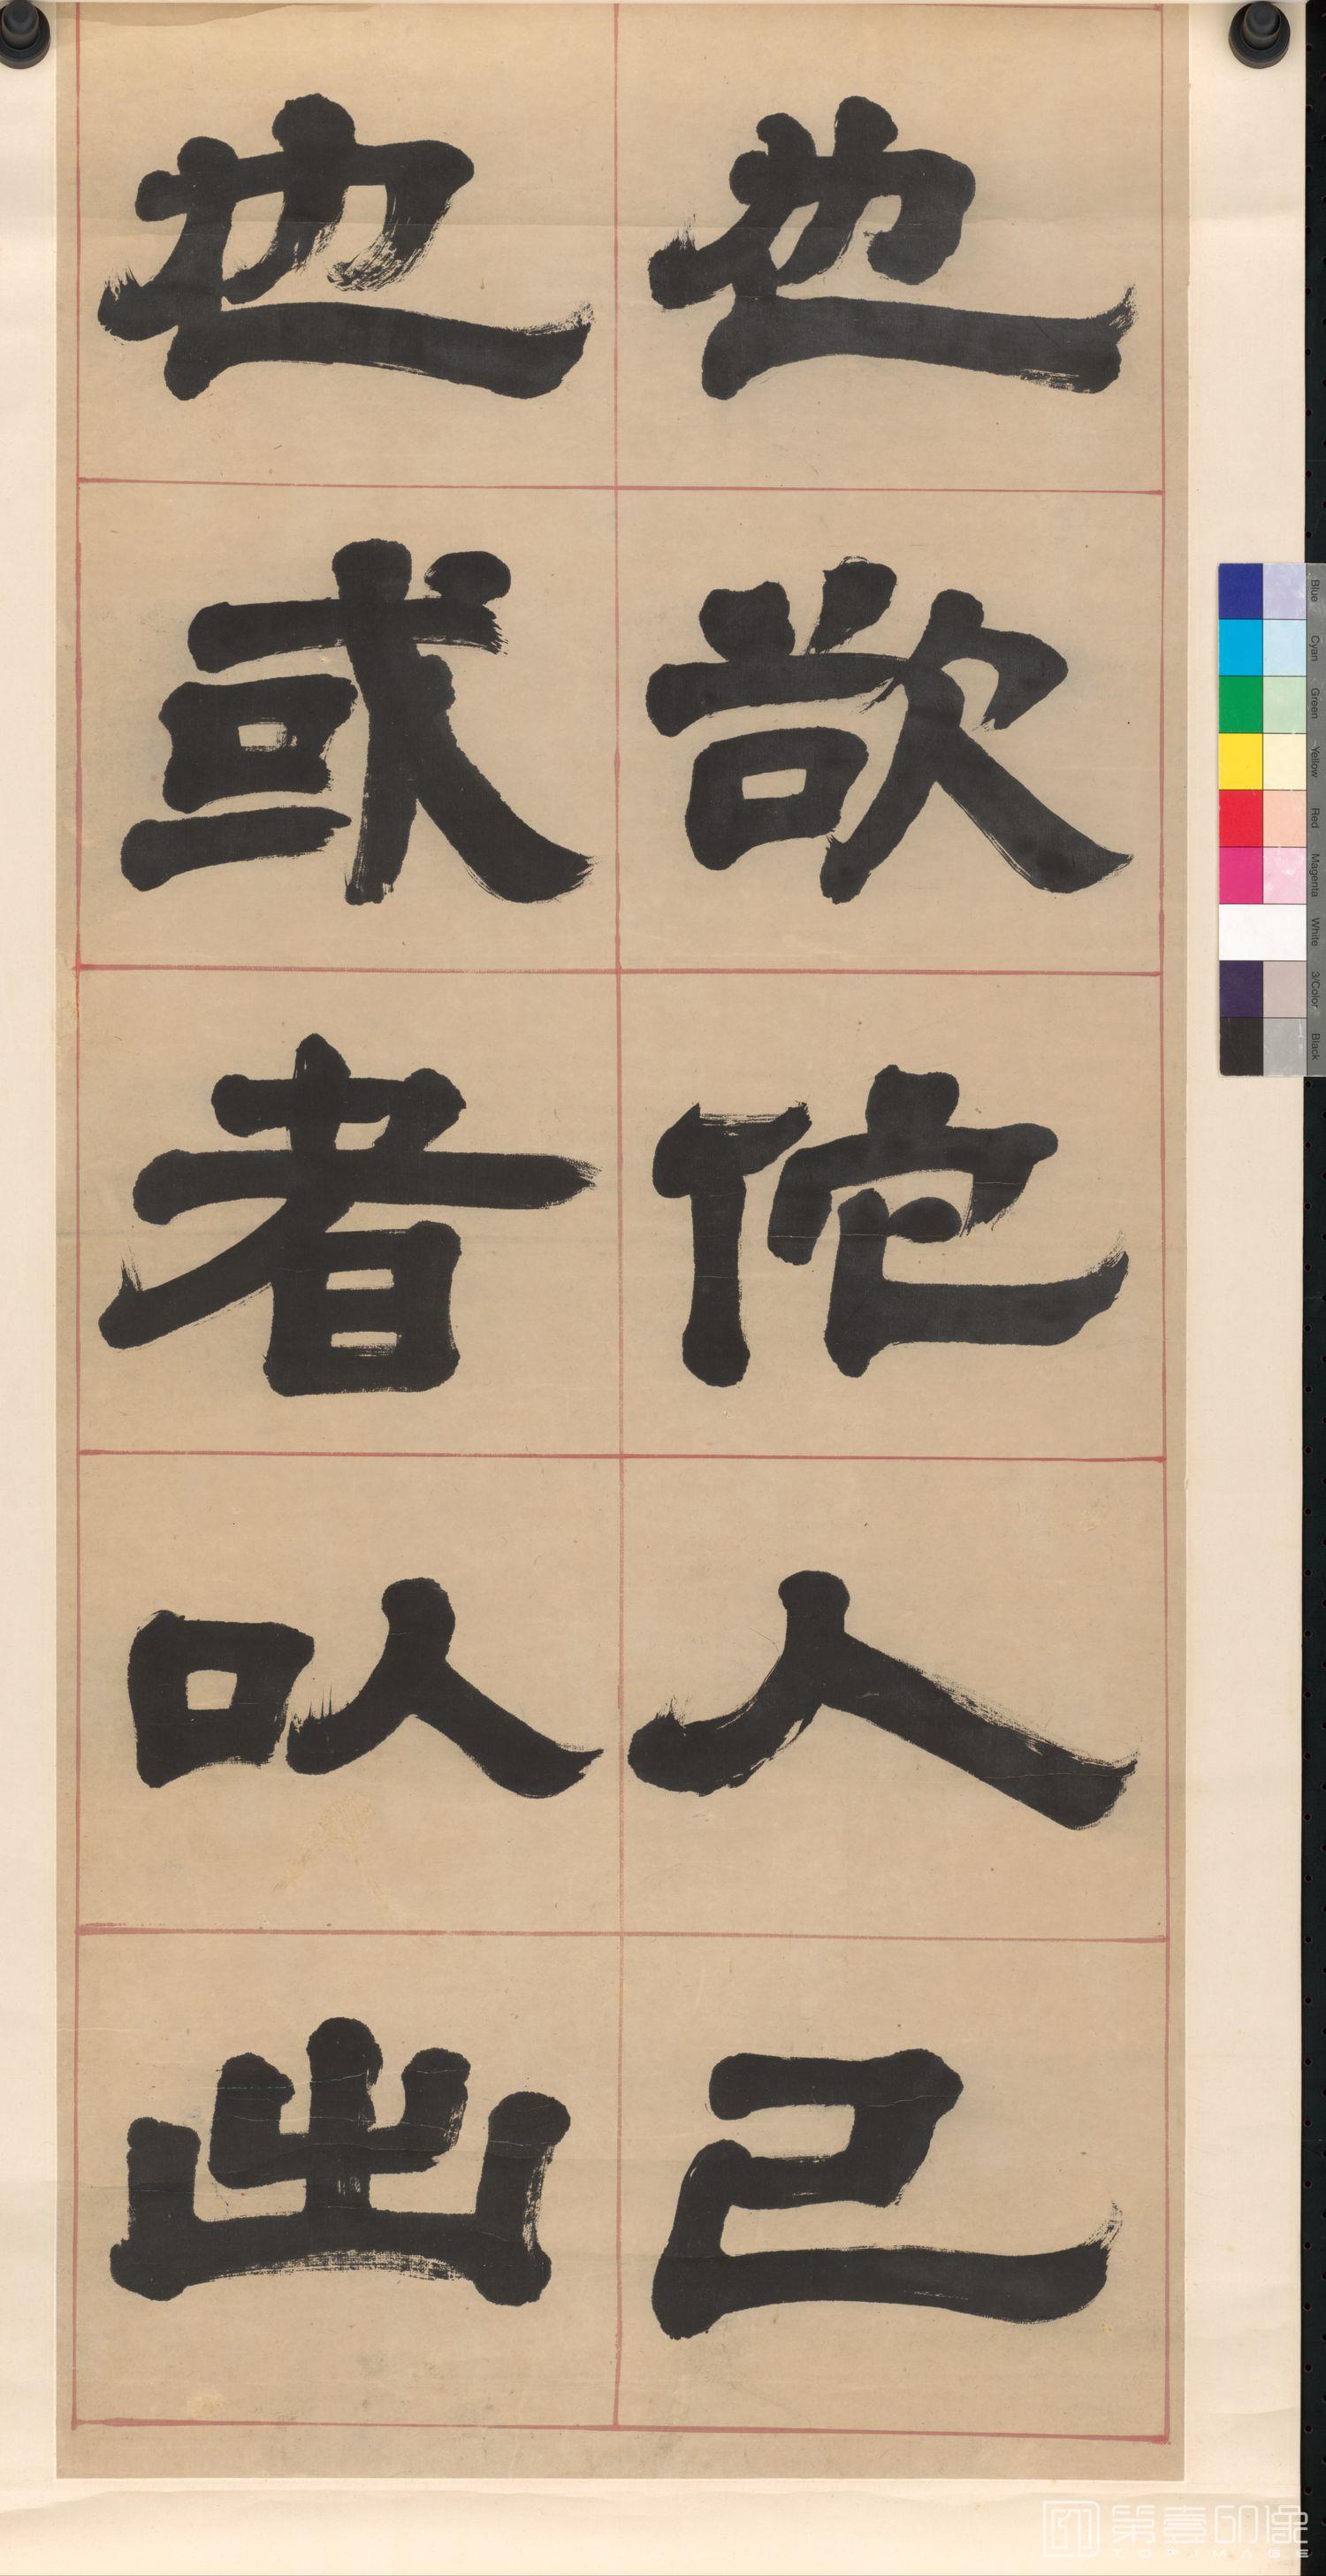 也欲佗人己
也或者以出
Blue
Cyan
Green
Yellow
Red
Magenta
White
3/Color
Black
第壹印像
TOPIMAGE